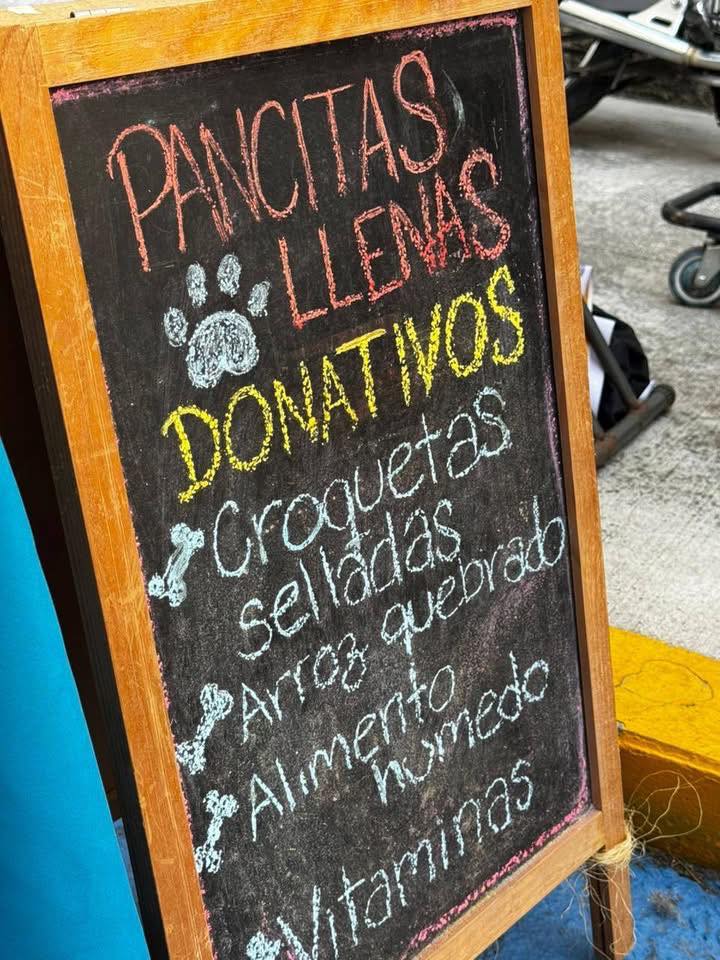 PANCITAS
LLENAS
DONATIVOS
Croquetas
selladas
Arroz quebrado
Alimento
humedo
Vitaminas